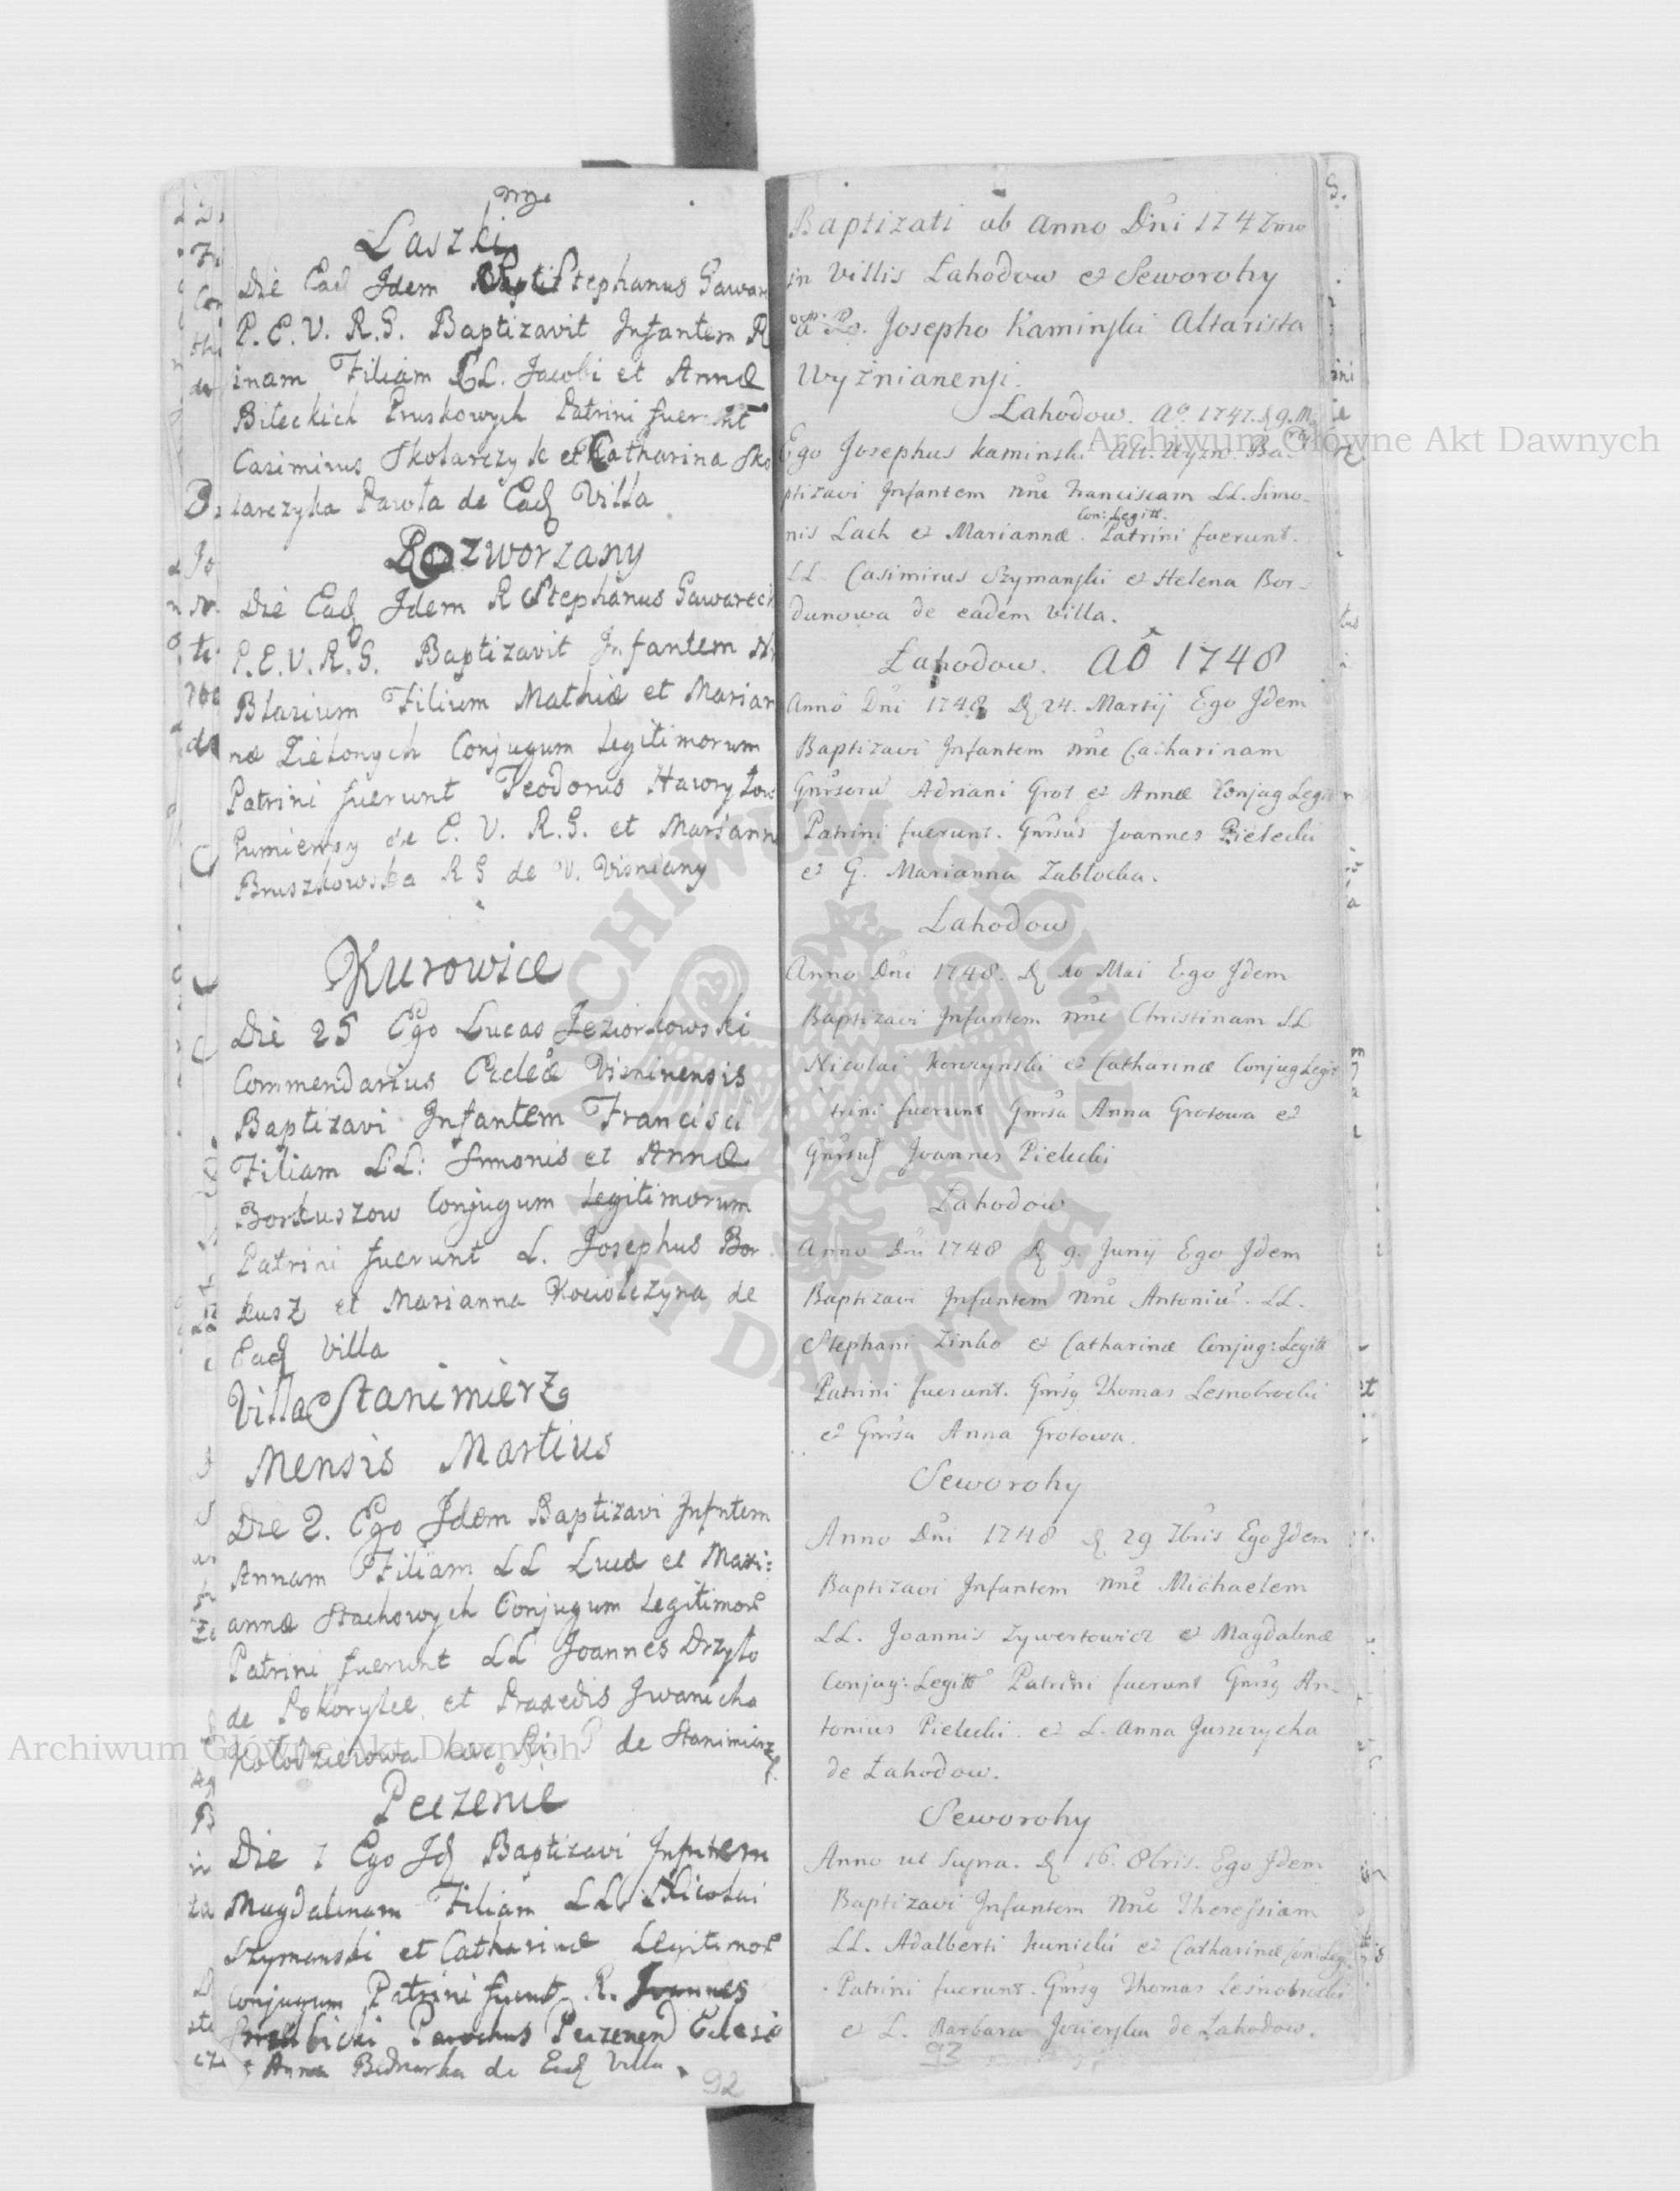 Laszki
Die Ead Idem Stephanus Gawar
P. E. V. R. G. Baptizavit Infantem R
inam Filiam LL. Jacobi et Annæ
Biteckich Pruskowych Patrini fuerunt
Casimirus Skotarczyk et Catharina Sko
tarczyka Parola de Ead Villa
Rozworzany
Die Ead Idem R Stephanus Gawarec
P. E. V. R. G. Baptizavit Infantem N
Blazium Filium Mathiæ et Marian
næ Zielonych Conjugum Legitimorum
Patrini fuerunt Teodorus Hawrylow
Gumienny de E. V. R. G. et Mariann
Bruszkowska R G de V. Visniany
Kurowice
Die 25 Ego Lucas Jeziorkowski
Commendarius Eccleæ Visninensis
Baptizavi Infantem Francisci
Filiam LL: Simonis et Annæ
Borkuszow Conjugum Legitimorum
Patrini fuerunt L. Josephus Bor
kusz et Marianna Kociolczyna de
Ead Villa
Villa Stanimierz
Mensis Martius
Die 2. Ego Idem Baptizavi Infntem
Annam Filiam LL Lucæ et Mari:
annæ Stachowych Conjugum Legitimor
Patrini fuerunt LL Joannes Drzyto
de Pokorylce et Praxedis Iwanicha
Kolodzieiowa de Stanimierz
Peczenie
Die 7 Ego Id Baptizavi Infntem
Magdalenam Filiam LL Nicolai
Szymanski et Catharinæ Legitimor
Conjugum Patrini fuerunt R. Joannes
Parochus Peczenen Eclesiæ
Anna Bednarka de Ead Villa
92
Baptizati ab Anno Dni 1747mo
in Villis Lahodow et Seworohy
a Josepho Kaminski Altarista
Wyżnianensi.
Lahodow. Ao. 1747. d 9.
Ego Josephus Kaminski Alt. Wyzn. Ba
ptizavi Infantem nne Franciscam LL. Simo-
Con: Legitt.
nis Lach et Mariannæ. Patrini fuerunt.
LL. Casimirus Szymanski et Helena Bor-
dunowa de eadem Villa.
Lahodow. AO 1748
Anno Dni 1748 d 24. Martij Ego Idem
Baptizavi Infantem nne Catharinam
Gnrsoru Adriani Grot et Annæ Conjug Legitt
Patrini fuerunt. Gnrsus Joannes Pielecki
et G. Marianna Zablocka.
Lahodow
Anno Dni 1748. d 10 Mai Ego Idem
Baptizavi Infantem nne Christinam LL
Nicolai Korczynski et Catharinæ Conjug Legit
trini fuerunt Gnrsa Anna Grotowa et
Gnrsus Joannes Pielecki
Lahodow
Anno Dni 1748 d 9. Junij Ego Idem
Baptizavi Infantem nne Antoniu. LL.
Stephani Zinko et Catharinæ Conjug: Legitt
Patrini fuerunt. Gnrsg Thomas Lesnobrocki
et Gnrsa Anna Grotowa.
Seworohy
Anno Dni 1748 d 29 7bris Ego Idem
Baptizavi Infantem nne Michaelem
LL. Joannis Zywertowicz et Magdalenæ
Conjug: Legitt Patrini fuerunt Gnrsg An-
tonius Pielecki. et L. Anna Juszczycha
de Lahodow.
Seworohy
Anno ut Supra. d 16. 8bris. Ego Idem
Baptizavi Infantem Nne Theressiam
LL. Adalberti Kunicki et Catharinæ Coni: Leg
Patrini fuerunt. Gnrsg Thomas Lesnobrocki
et L. Barbara Jozierska de Lahodow.
93
Archiwum Główne Akt Dawnych
Archiwum Główne Akt Dawnych
ARCHIWUM GŁÓWNE AKT DAWNYCH